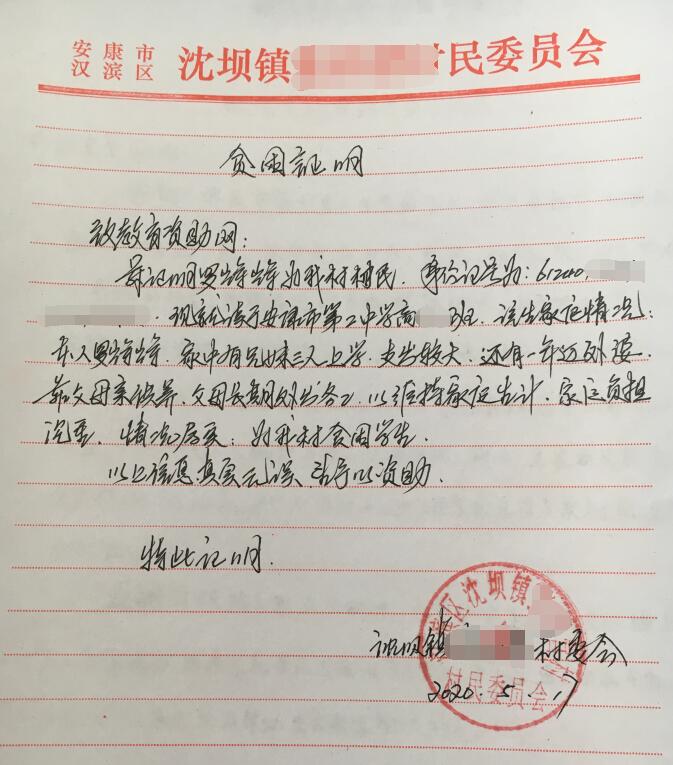 安康市
汉滨区
沈坝镇 村民委员会
贫困证明
致教育资助网:
兹证明罗锋锋为我村村民.身份证号为:61240
.现就读于安康市第二中学高 班.该生家庭情况:
本人罗锋锋.家中有兄妹三人上学.支出较大.还有一年迈外婆
需父母亲供养.父母长期外出务工以维持家庭生计.家庭负担
沉重.情况属实.为我村贫困学生.
以上信息真实无误.请予以资助.
特此证明.
沈坝镇 村委会
2020.5.17
滨区沈坝镇
村民委员会